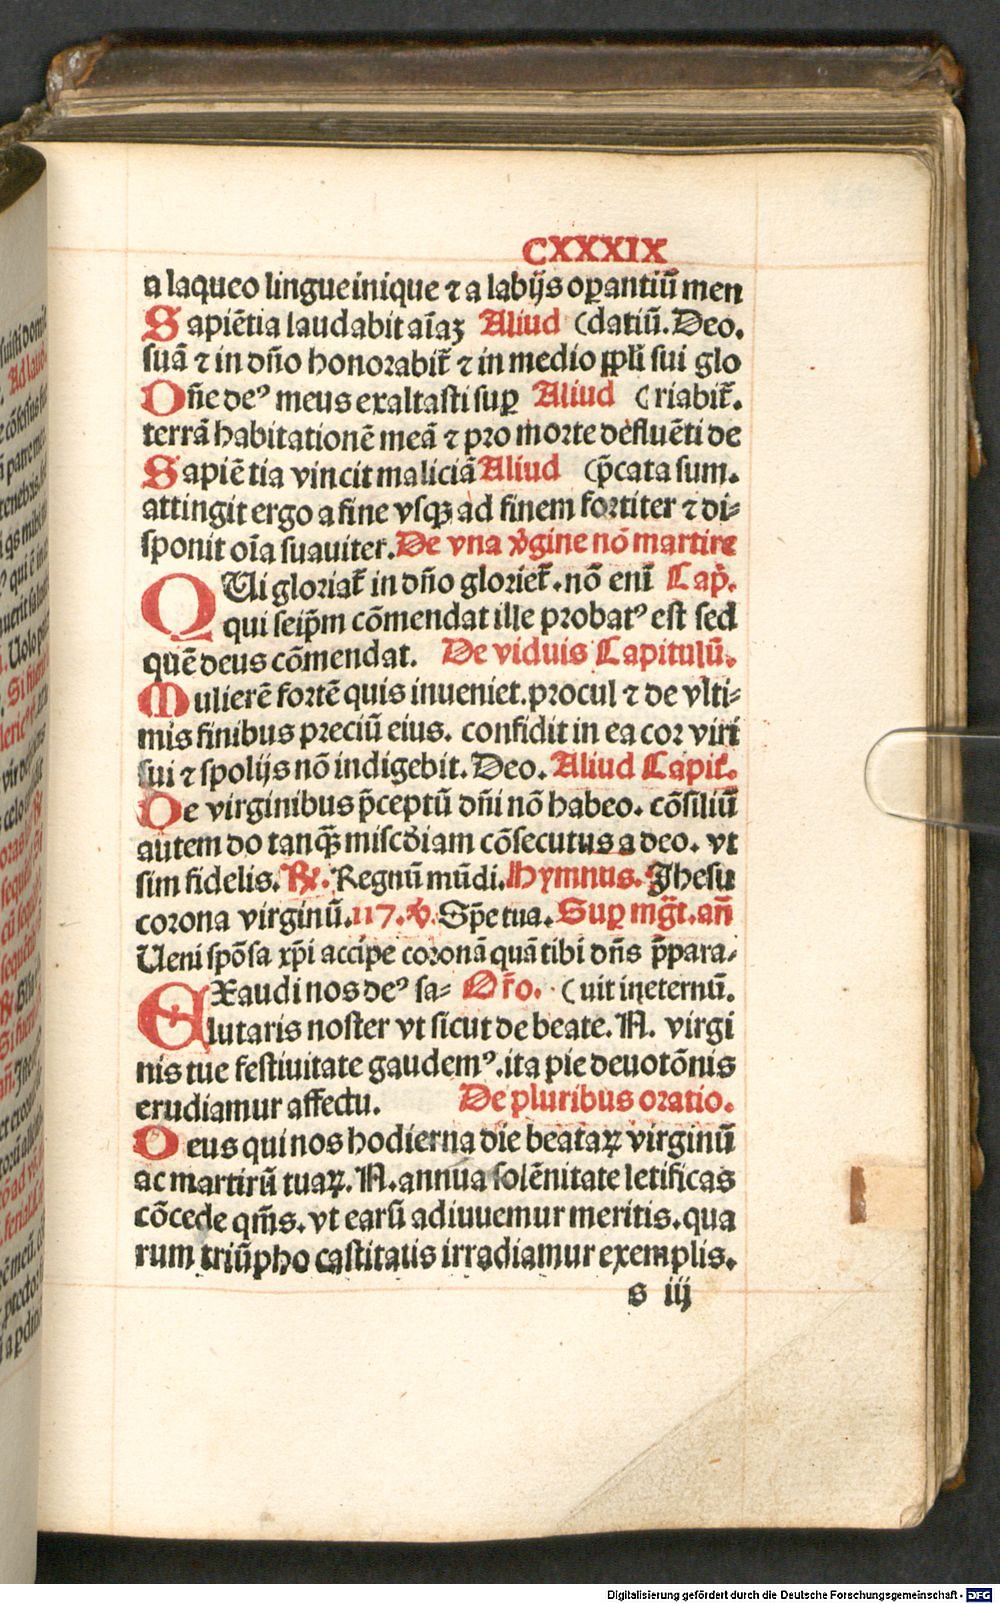 CXXXIX
a laqueo lingue inique ⁊ a labijs oꝑantiū men
Sapiētia laudabit aīaꝫ Aliud (datiū. Deo.
suā ⁊ in dn̄o honorabit̄ ⁊ in medio ppl̄i sui glo
One de⁹ meus exaltasti suꝑ Aliud (riabit̄.
terrā habitationē meā ⁊ pro morte defluēti de
Sapiētia vincit maliciā Aliud (p̄cata sum.
attingit ergo a fine vsqꝫ ad finem fortiter ⁊ di⸗
sponit oīa suauiter. De vna v̾gine nō martire
QUi gloriat̄ in dn̄o gloriet̄. nō enī Cap̄.
qui seip̄m cōmendat ille probat⁹ est sed
quē deus cōmendat. De viduis Capitulū.
Mulierē fortē quis inueniet. procul ⁊ de vlti⸗
mis finibus preciū eius. confidit in ea cor viri
sui ⁊ spolijs nō indigebit. Deo. Aliud Capit̄.
De virginibus p̄ceptū dn̄i nō habeo. cōsiliū
autem do tanqꝫ̄ misc̄diam cōsecutus a deo. vt
sim fidelis. ℟. Regnū mūdi. Hymnus. Jhesu
corona virginū. 117. ℣. Sp̄e tua. Suꝑ mgt̄. an̄
Ueni spōsa xp̄i accipe coronā quā tibi dn̄s p̄para⸗
EXaudi nos de⁹ sa⸗ Or̄o. (uit in eternū.
lutaris noster vt sicut de beate. N. virgi
nis tue festiuitate gaudem⁹. ita pie deuotōnis
erudiamur affectu. De pluribus oratio.
Deus qui nos hodierna die beataꝝ virginū
ac martirū tuaꝝ. N. annua solēnitate letificas
cōcede qm̄s. vt earū adiuuemur meritis. qua
rum triūpho castitatis irradiamur exemplis.
s iij
Digitalisierung gefördert durch die Deutsche Forschungsgemeinschaft - DFG